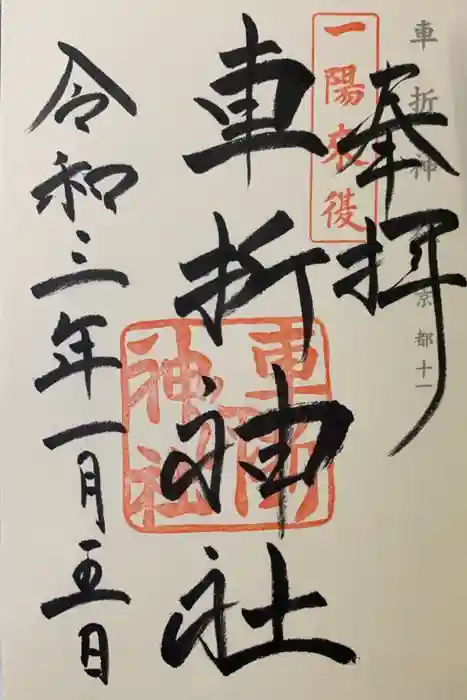 車折神社 京都十一
奉拝
一陽來復
車折神社
車折
神社
令和三年一月五日